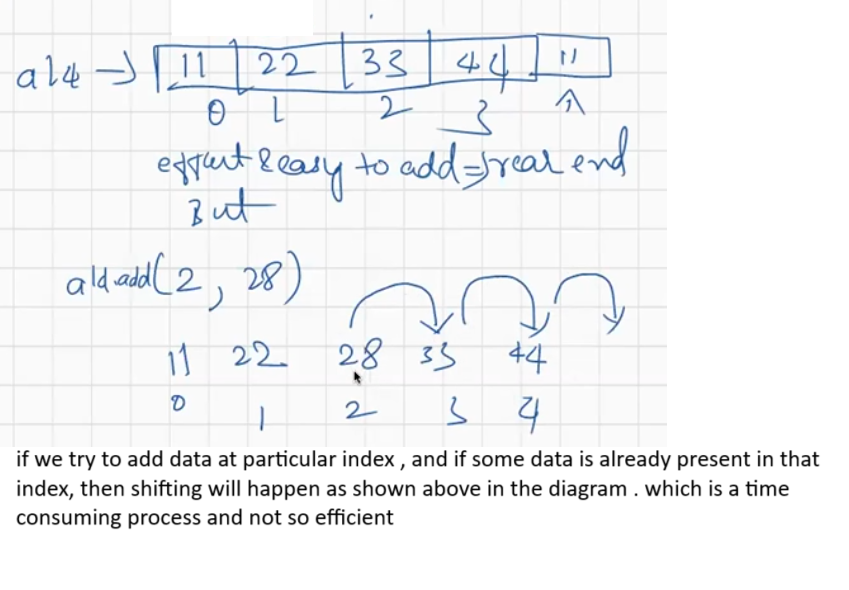 al4 → 11 22 33 44 11
0 1 2 3
& easy to add ⇒ rear end
But
add(2, 28)
11 22 28 33 44
0 1 2 3 4
if we try to add data at particular index , and if some data is already present in that
index, then shifting will happen as shown above in the diagram . which is a time
consuming process and not so efficient